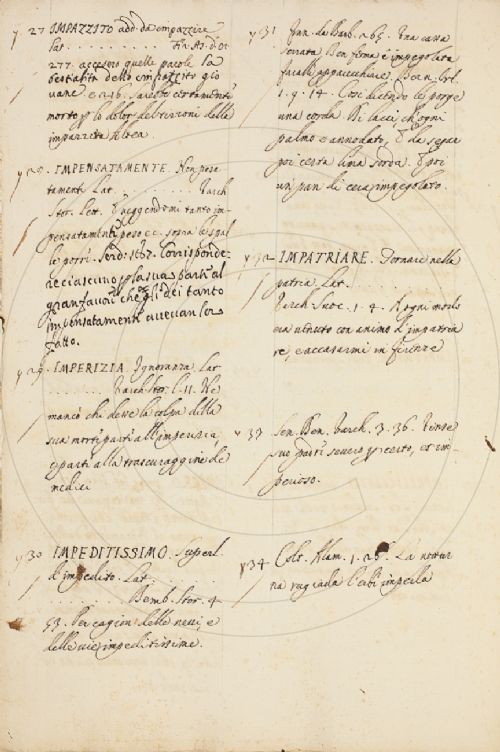 y 27 IMPAZZITO add. da impazzire
Lat.
277. accesero quelle parole la
bestialità dello impazzito gio
vane. e
morto p lo dolor
impazzita
y 28. IMPENSATAMENTE. Non pesa
tamente Lat. . . . . . . . . Varch
Stor. Lett. E veggendomi tanto im
pensatamente peso ec. sovra le spal
le porsi. Corrisponde
re ciascuno p la sua parte al
gran favore che gli dei tanto
impensatamente avevan lor
fatto.
y 29. IMPERIZIA. Ignoranza Lat
. . . . . . . Varch. Stor. l. 11. Ne
mancò chi desse la colpa della
sua morte parte all'imperizia,
e parte alla trascuraggine de
medici
y 30 IMPEDITISSIMO. Superl.
d'impedito. Lat. . . . . . . .
. . . . . . . . Bemb. Stor. 4
53. Per cagion delle nevi, e
delle vie impeditissime.
y 31 Fran. da Barb. 265. Una cassa
serrata Ben ferma e impegolata
faralle appiccare. Bern. Orl.
1. 9. 14. Così dicendo le porge
una corda Di lacci ch'ogni
palmo e annodata, E da
poi cesta lima sorda. E poi
un pan di cera impegolato.
y 32 IMPATRIARE. Tornare nella
patria Lat.
Varch Suoc. 1. 4. A ogni modo
era venuto con animo d'impatria
re, e accasarmi in firenze
y 33 Sen. Ben. Varch. 3. 36. Vinse
suo padre severo p certo, et im
perioso.
y 34 Colt. Alam. 1. 25. La nottur
na rugiada l'erbe imperla